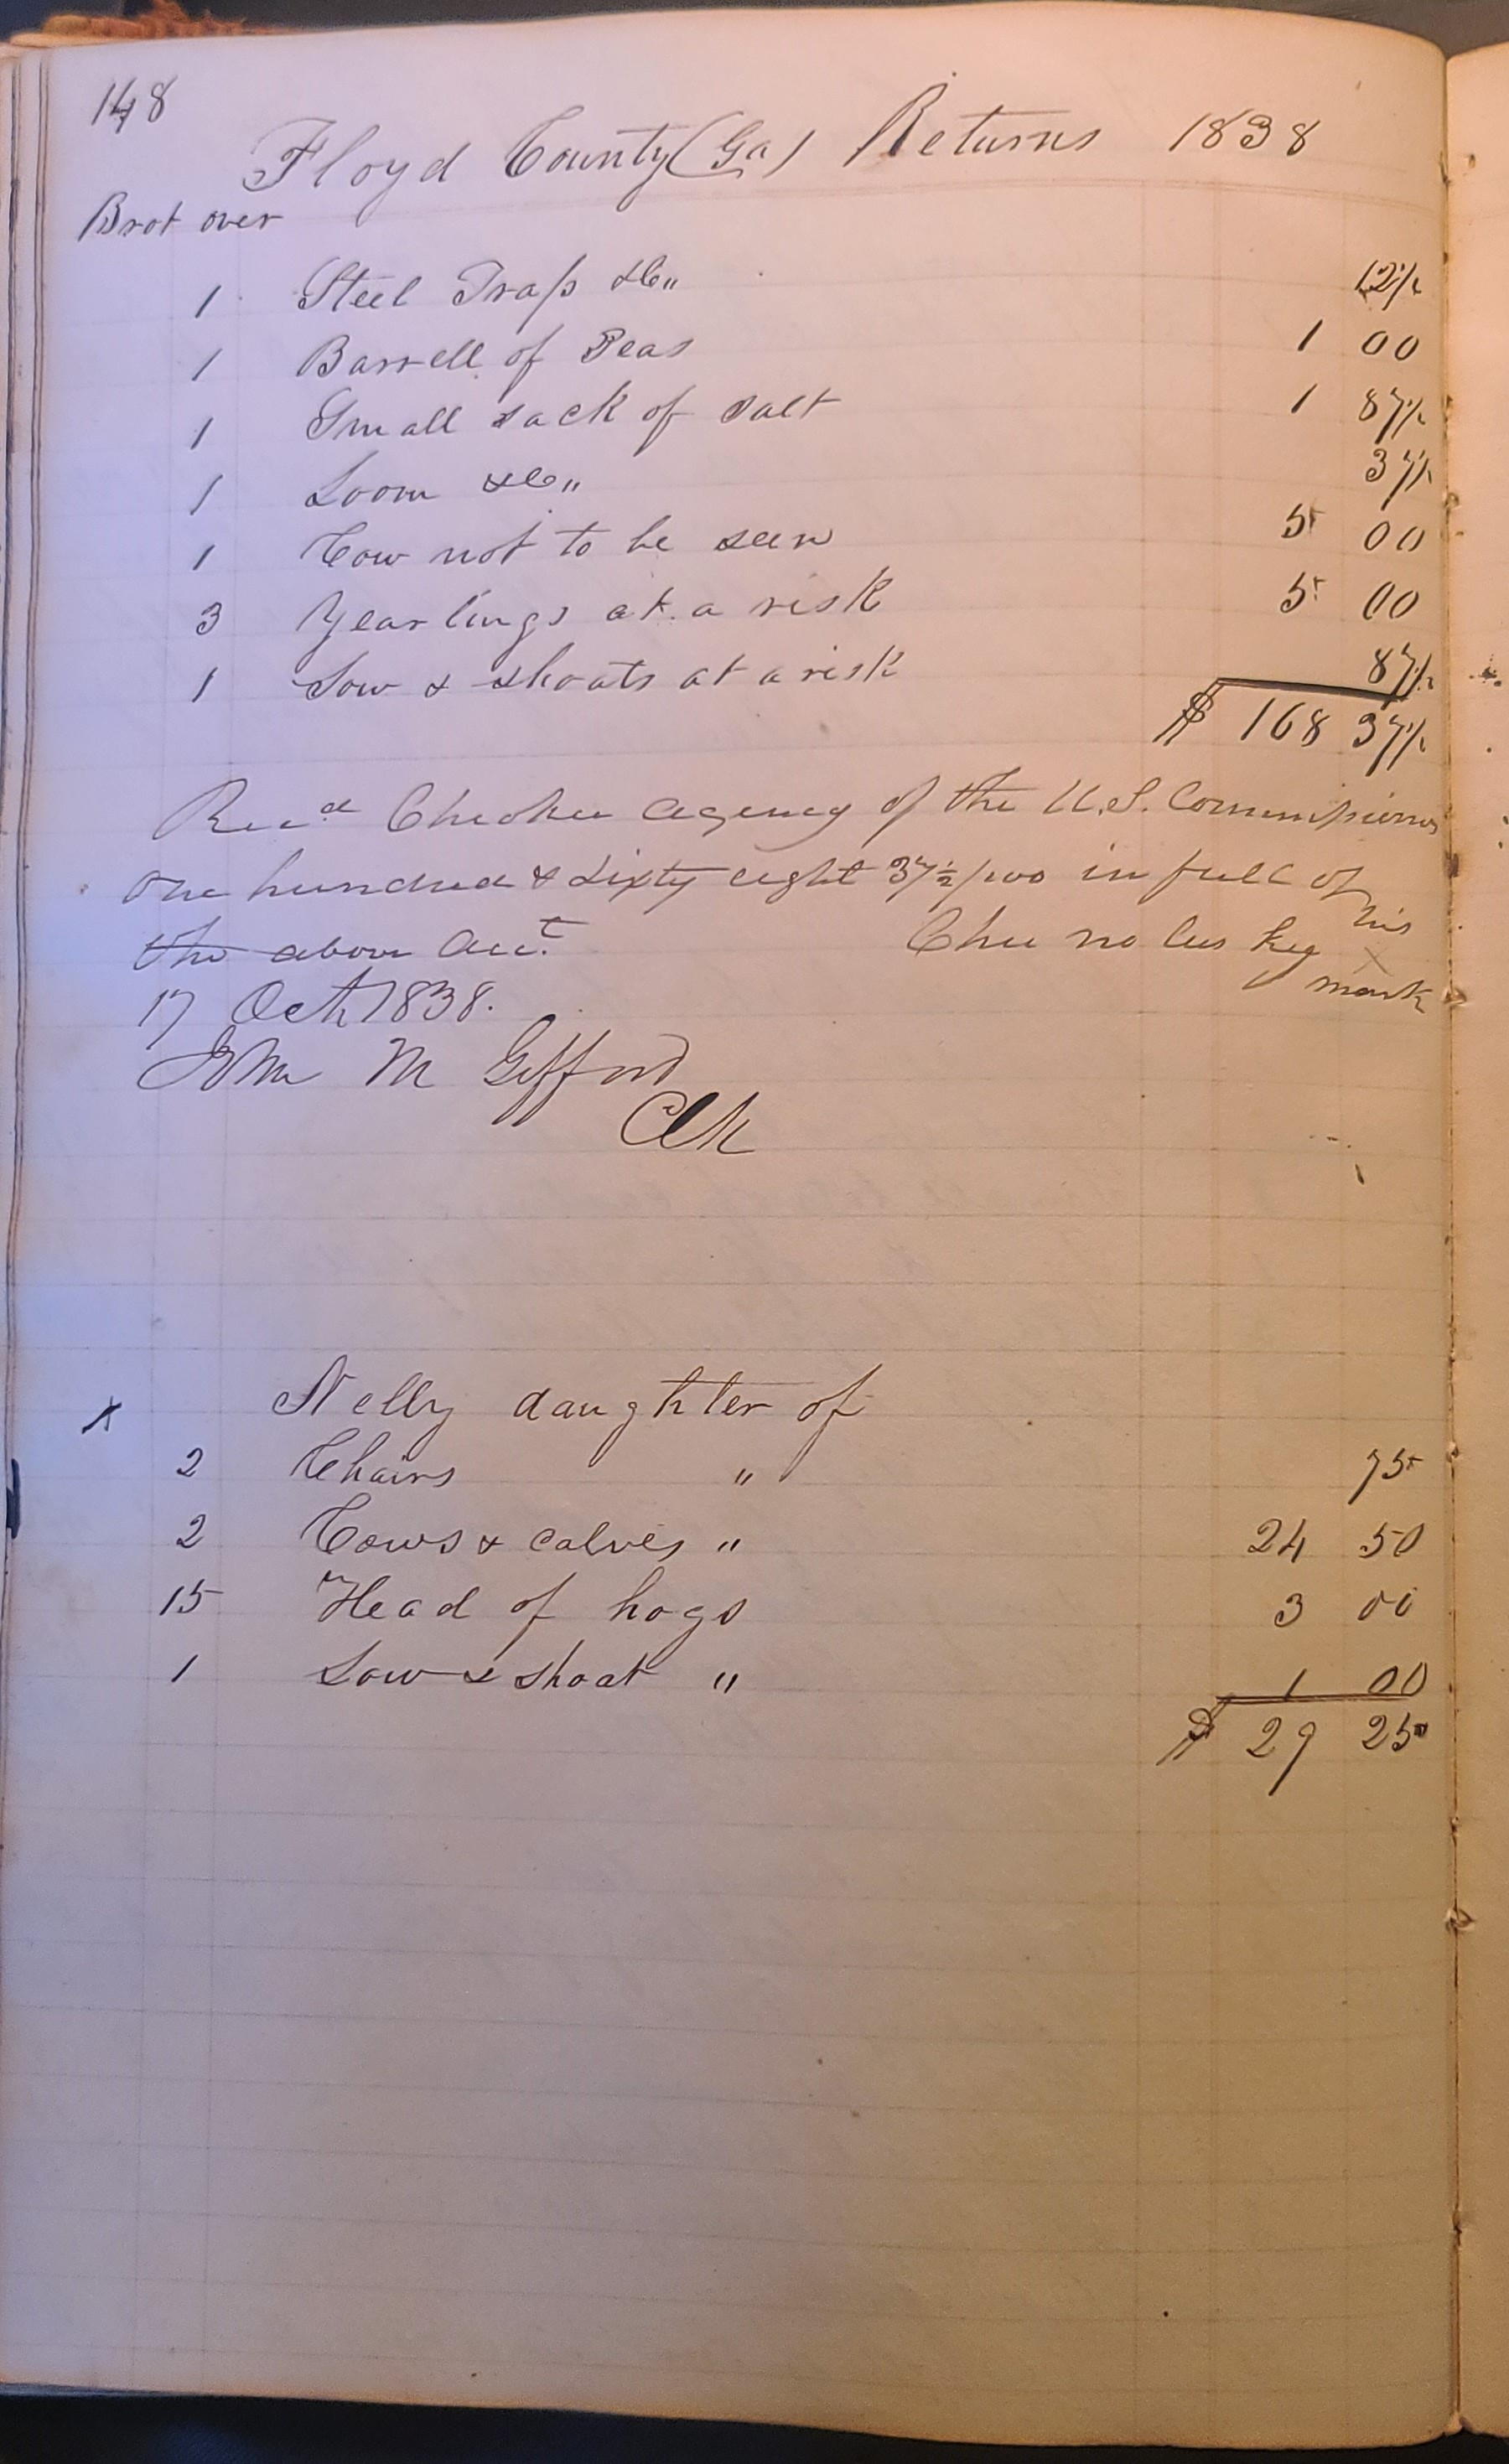 148
Floyd County (Ga) Returns 1838
Brot over
1 Steel Trap &c,, 12½
1 Barrell of Peas 1 00
1 Small sack of Salt 1 87½
1 Loom &c,, 37½
1 Cow not to be seen 5 00
3 Yearlings at a risk 5 00
1 Sow & shoats at a risk 87½
$ 168 37½
Recd Cherokee Agency of the U.S. Commissioners
One hundred & sixty eight 37½/100 in full of
the above Acct. Chu no lus key his x mark
17 Oct 1838.
John M Gifford
Clk
x Nelly daughter of
2 Chairs " 75
2 Cows & calves " 24 50
15 Head of hogs 3 00
1 Sow & shoat " 1 00
$ 29 25